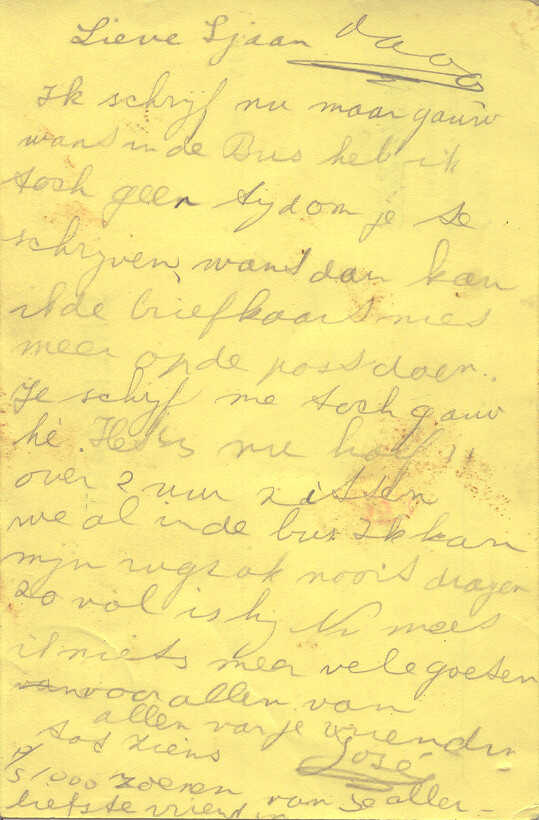 Lieve Sjaan daoo
Ik schrijf nu maar gauw
want in de Bus heb ik
toch geen tyd om je te
schrijven, want dan kan
ik de briefkaart niet
meer op de post doen.
Je schijf me toch gauw
hè. Het is nu half 11
over 2 uur zitten
we al in de bus Ik kan
mijn rugzak nooit dragen
zo vol is hij Nu meet
ik niets meer vele goeten
voor allen van
allen van je vriendin
tot ziens José
P/S 1000 zoenen van je aller-
liefste vriendin